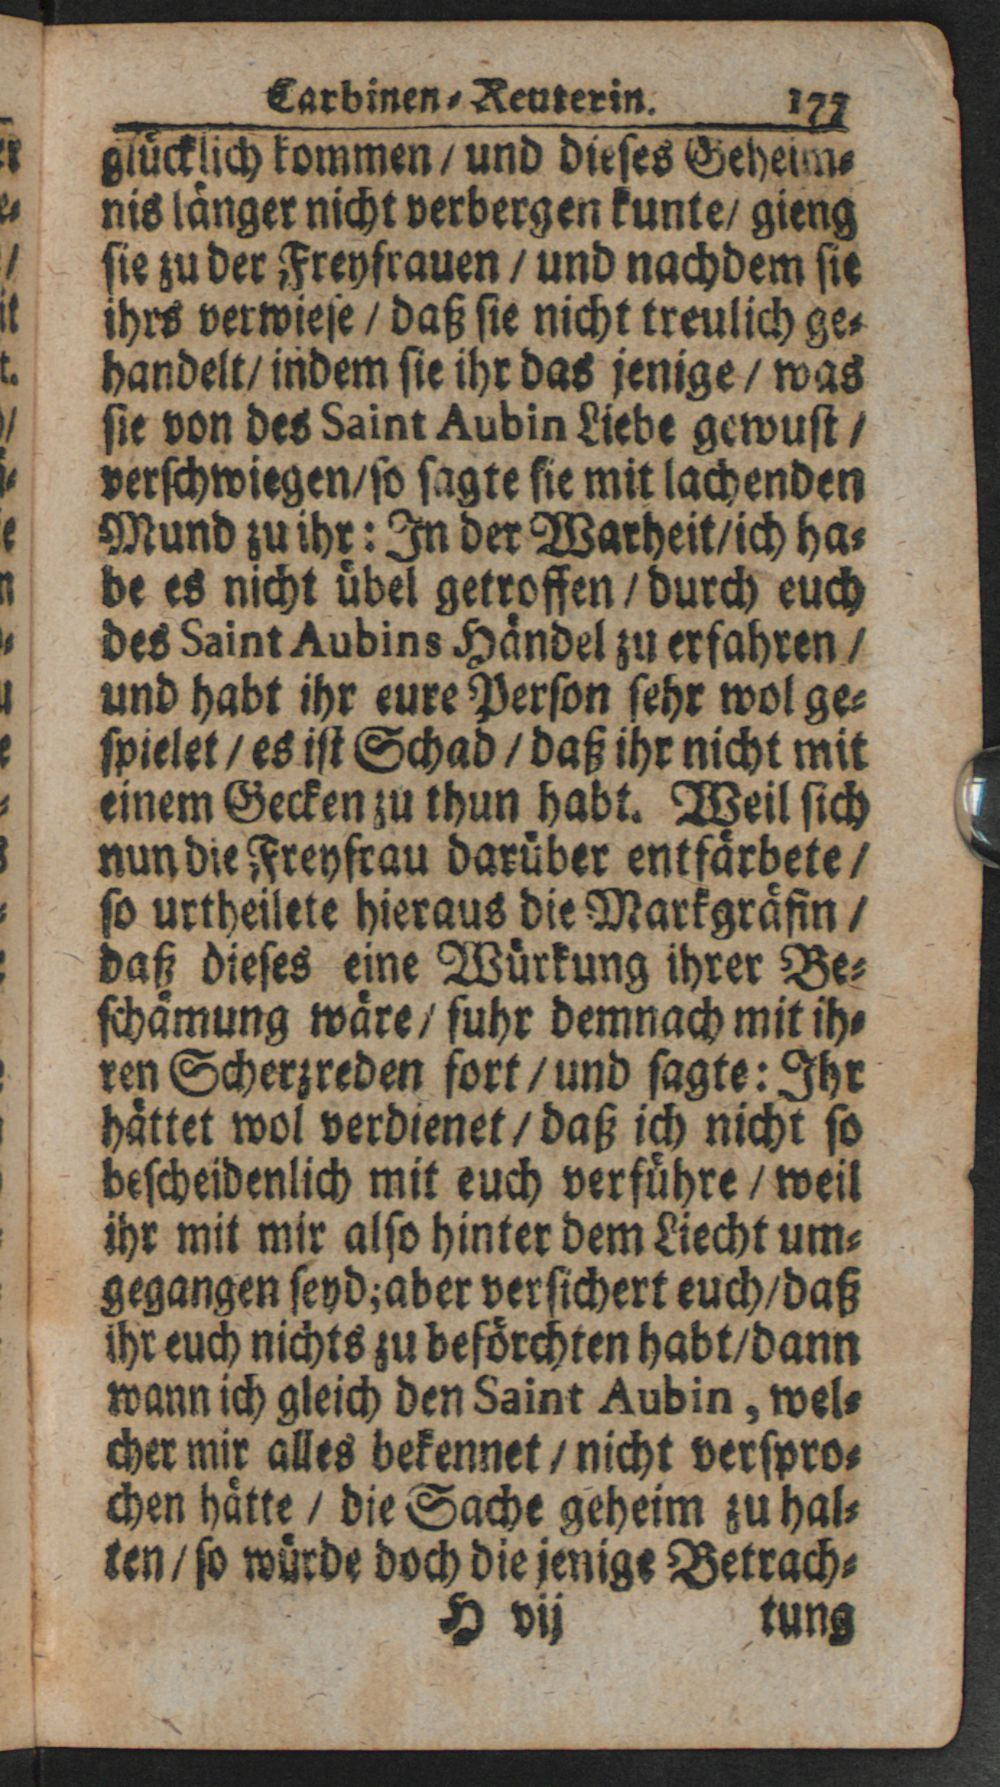 Carbinen-Reuterin. 177
glücklich kommen / und dieses Geheim-
nis länger nicht verbergen kunte / gieng
sie zu der Freyfrauen / und nachdem sie
ihrs verwiese / daß sie nicht treulich ge-
handelt / indem sie ihr das jenige / was
sie von des Saint Aubin Liebe gewust /
verschwiegen / so sagte sie mit lachenden
Mund zu ihr: In der Warheit / ich ha-
be es nicht übel getroffen / durch euch
des Saint Aubins Händel zu erfahren /
und habt ihr eure Person sehr wol ge-
spielet / es ist Schad / daß ihr nicht mit
einem Gecken zu thun habt. Weil sich
nun die Freyfrau darüber entfärbete /
so urtheilete hieraus die Markgräfin /
daß dieses eine Würkung ihrer Be-
schämung wäre / fuhr demnach mit ih-
ren Scherzreden fort / und sagte: Ihr
hättet wol verdienet / daß ich nicht so
bescheidenlich mit euch verführe / weil
ihr mit mir also hinter dem Liecht um-
gegangen seyd; aber versichert euch / daß
ihr euch nichts zu beförchten habt / dann
wann ich gleich den Saint Aubin, wel-
cher mir alles bekennet / nicht verspro-
chen hätte / die Sache geheim zu hal-
ten / so würde doch die jenige Betrach-
H vij tung